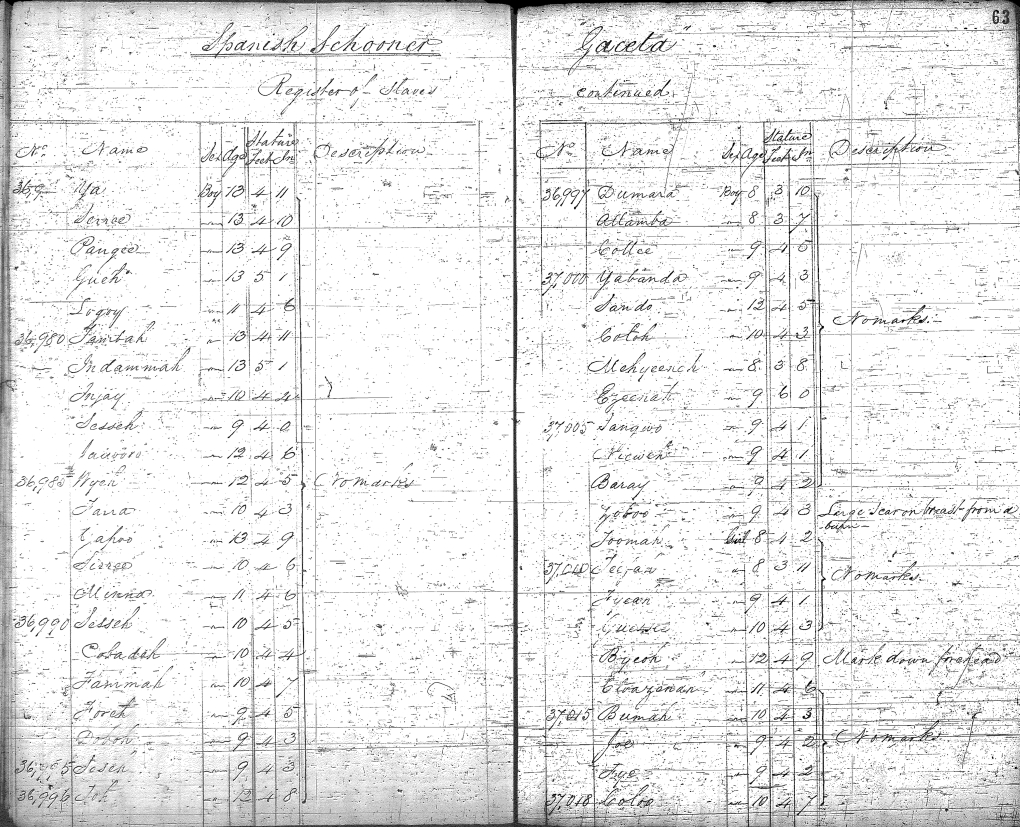 63
Spanish Schooner "Gaceta"
Register of Slaves continued
No. Name Sex Age Stature Feet In Description
Ya Boy 13 4 11
13 4 10
Pangee " 13 4 9
Gueh " 13 5 1
Logoy " 11 4 6
36,980 Jambah " 13 4 11
Indammah " 13 5 1
Injay " 10 4 4
Sesseh " 9 4 0
" 12 4 6
36,985 Wyeh " 12 4 5 No marks
Tana " 10 4 3
Cahoo " 13 4 9
" 10 4 6
Minna " 11 4 6
36,990 Sesseh " 10 4 5
Cobadeh " 10 4 4
Fammah " 10 4 7
Foreh " 9 4 5
Doboh " 9 4 3
36,995 Jeseh " 9 4 3
36,996 Joh " 12 4 8
No. Name Sex Age Stature Feet In Description
36,997 Dumara Boy 8 3 10
Allamba " 8 3 7
Collee " 9 4 5
37,000 Yabanda " 9 4 3
Sando " 12 4 5 No marks.
Cotoh " 10 4 3
" 8 3 8
" 9 6 0
37,005 Sangwo " 9 4 1
" 9 4 1
Baray " 9 4 2
" 9 4 3 Large scar on breast from a burn
Joomah Girl 8 4 2
37,010 " 8 3 11 No marks.
Fyean " 9 4 1
Guessie " 10 4 3
Byeoh " 12 4 9 Mark down forehead
" 11 4 6
37,015 Bumah " 10 4 3
Joe " 9 4 2 No marks
Fye " 9 4 2
37,018 Coloo " 10 4 7